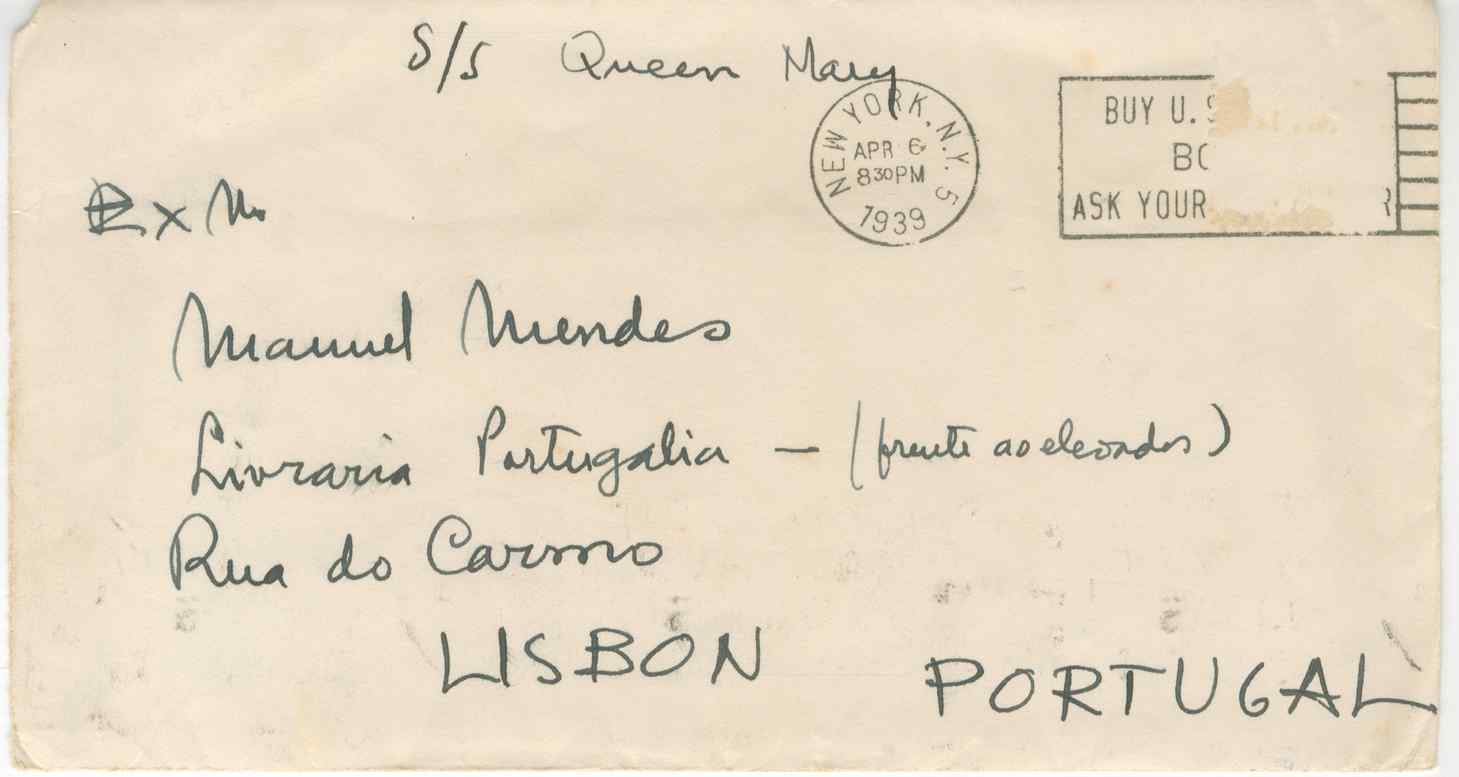 S/S Queen Mary
NEW YORK, N.Y. 5
APR 6
830PM
1939
BUY U.S
BO
ASK YOUR R
Ex Mo
Manuel Mendes
Livraria Portugalia — (frente ao elevador)
Rua do Carmo
LISBON PORTUGAL